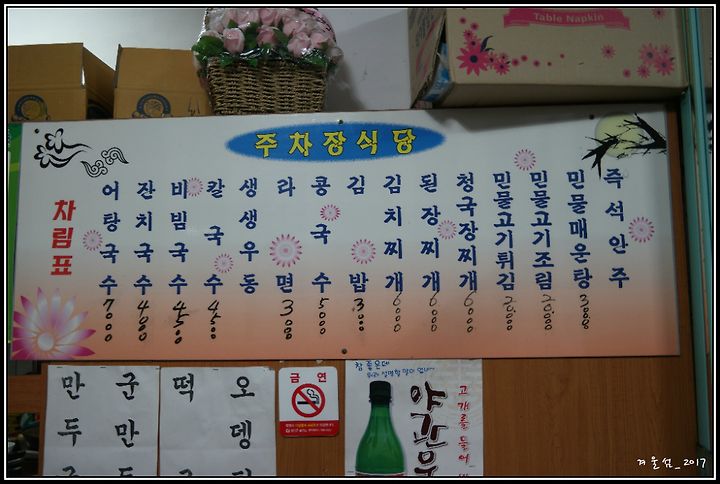 Table Napkin
주차장식당
차림표
어탕국수 7000
잔치국수 4000
비빔국수 4500
칼국수 4500
생생우동
라면 3000
콩국수 5000
김밥 3000
김치찌개 6000
된장찌개 6000
청국장찌개 6000
민물고기튀김
민물고기조림
민물매운탕
즉석안주
만두
군만
떡
오뎅
금연
참 좋은데
고개를 들어
겨울섬_2017